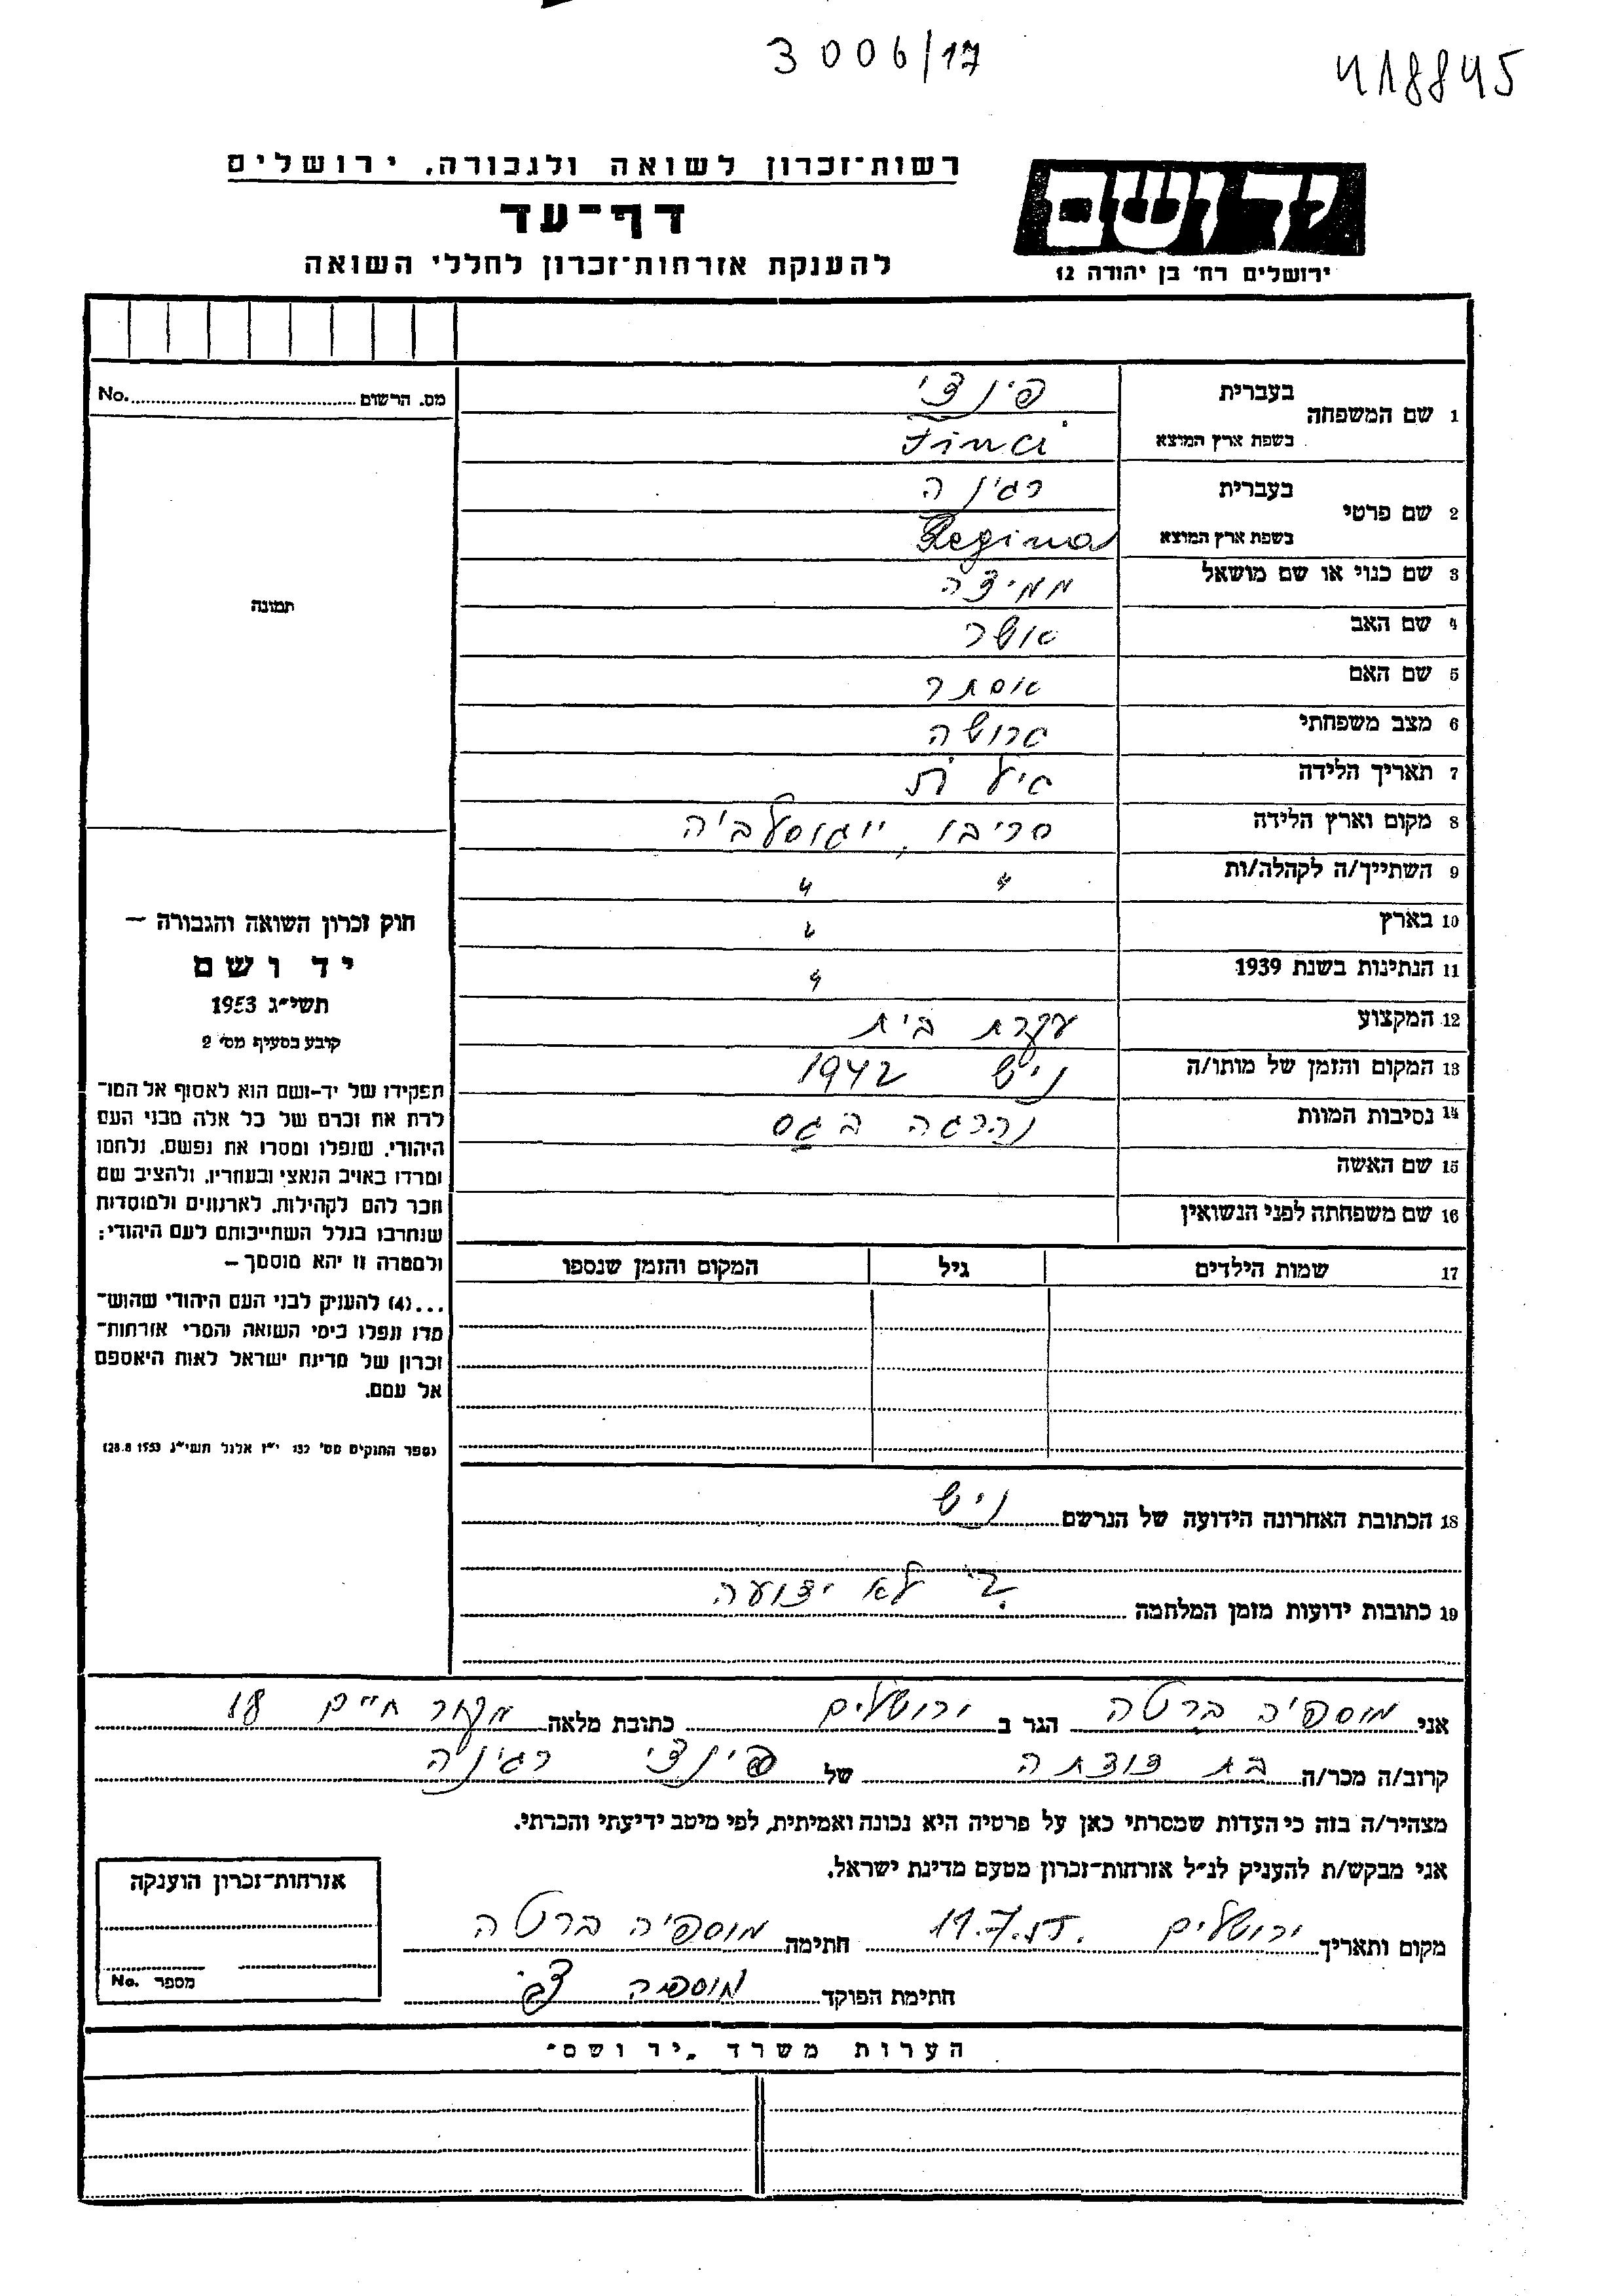 3006/17
418845
רשות-זכרון לשואה ולגבורה, ירושלים
דף-עד
להענקת אזרחות-זכרון לחללי השואה
יד ושם
ירושלים רח' בן יהודה 12
מס. הרשום No.
תמונה
1 שם המשפחה בעברית פינצי
בשפת ארץ המוצא Finci
2 שם פרטי בעברית רגינה
בשפת ארץ המוצא Regina
3 שם כנוי או שם מושאל ממיצה
4 שם האב אושר
5 שם האם אסתר
6 מצב משפחתי גרושה
7 תאריך הלידה גיל
8 מקום וארץ הלידה סריבו, יוגוסלביה
9 השתייך/ה לקהלה/ות " "
10 בארץ "
11 הנתינות בשנת 1939 "
12 המקצוע עקרת בית
13 המקום והזמן של מותו/ה ניש 1942
14 נסיבות המוות נהרגה בגס
15 שם האשה
16 שם משפחתה לפני הנשואין
17 שמות הילדים גיל המקום והזמן שנספו
חוק זכרון השואה והגבורה —
יד ושם
תשי"ג 1953
קובע בסעיף מס' 2
תפקידו של יד-ושם הוא לאסוף אל המו־
לדת את זכרם של כל אלה מבני העם
היהודי, שנפלו ומסרו את נפשם, נלחמו
ומרדו באויב הנאצי ובעוזריו, ולהציב שם
וזכר להם לקהילות, לארגונים ולמוסדות
שנחרבו בגלל השתייכותם לעם היהודי;
ולמטרה זו יהא מוסמך —
...(4) להעניק לבני העם היהודי שהוש־
מדו ונפלו בימי השואה והמרי אזרחות־
זכרון של מדינת ישראל לאות היאספם
אל עמם.
(ספר החוקים מס' 132 י"ז אלול תשי"ג 28.8.1953)
18 הכתובת האחרונה הידועה של הנרשם ניש
19 כתובות ידועות מזמן המלחמה לא ידועה
אני מוספיה ברטה הגר ב ירושלים כתובת מלאה מקור חיים 18
קרוב/ה מכר/ה בת דודתה של פינצי רגינה
מצהיר/ה בזה כי העדות שמסרתי כאן על פרטיה היא נכונה ואמיתית, לפי מיטב ידיעתי והכרתי.
אני מבקש/ת להעניק לנ"ל אזרחות-זכרון מטעם מדינת ישראל.
מקום ותאריך ירושלים 11.7.55. חתימה מוספיה ברטה
חתימת הפוקד מוספיה
אזרחות-זכרון הוענקה
מספר No.
הערות משרד "יד ושם"